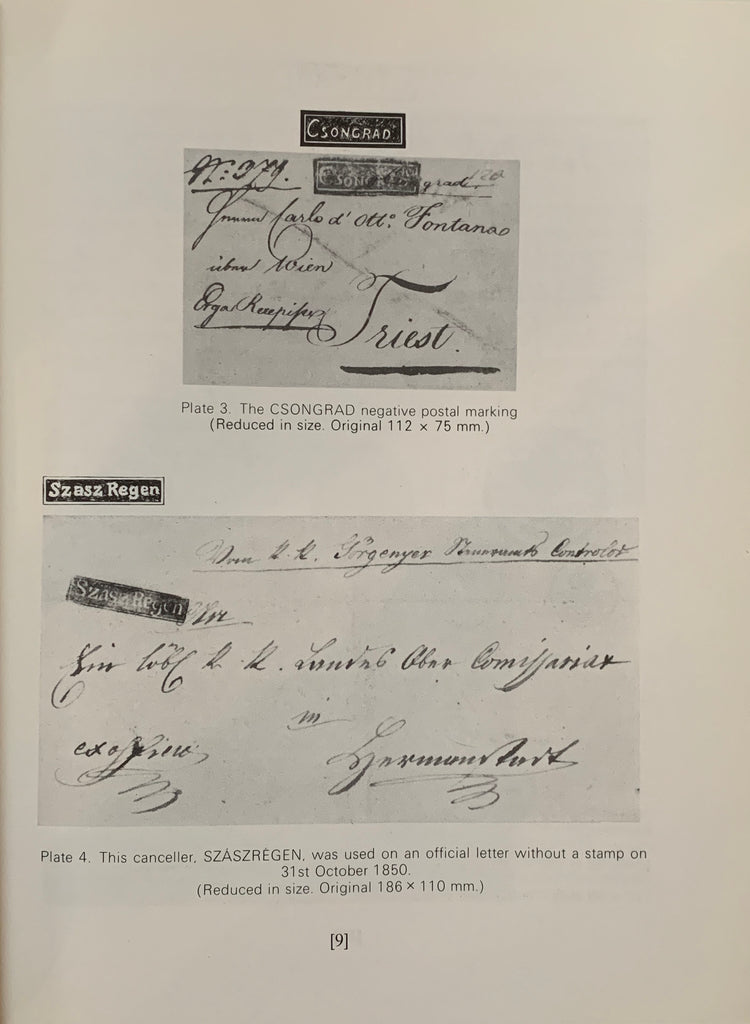 CSONGRAD
Nr: 379. CSONGRAD grad
Carlo d' Otto. Fontana
über Wien
Triest.
Plate 3. The CSONGRAD negative postal marking
(Reduced in size. Original 112 × 75 mm.)
Szasz Regen
Vom K. K. Görgenyer Steueramts Controlor
Szasz Regen An
Ein löbl K. K. Landes Ober Comissariat
in
ex officio Hermanstadt
Plate 4. This canceller, SZÁSZRÉGEN, was used on an official letter without a stamp on
31st October 1850.
(Reduced in size. Original 186 × 110 mm.)
[9]